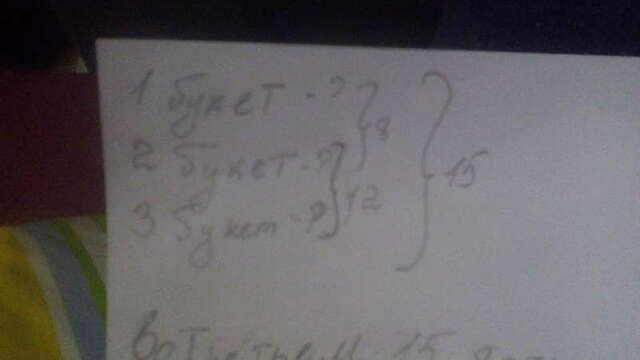 1 букет - ? 8
2 букет - ? 15
3 букет - ? 12
15